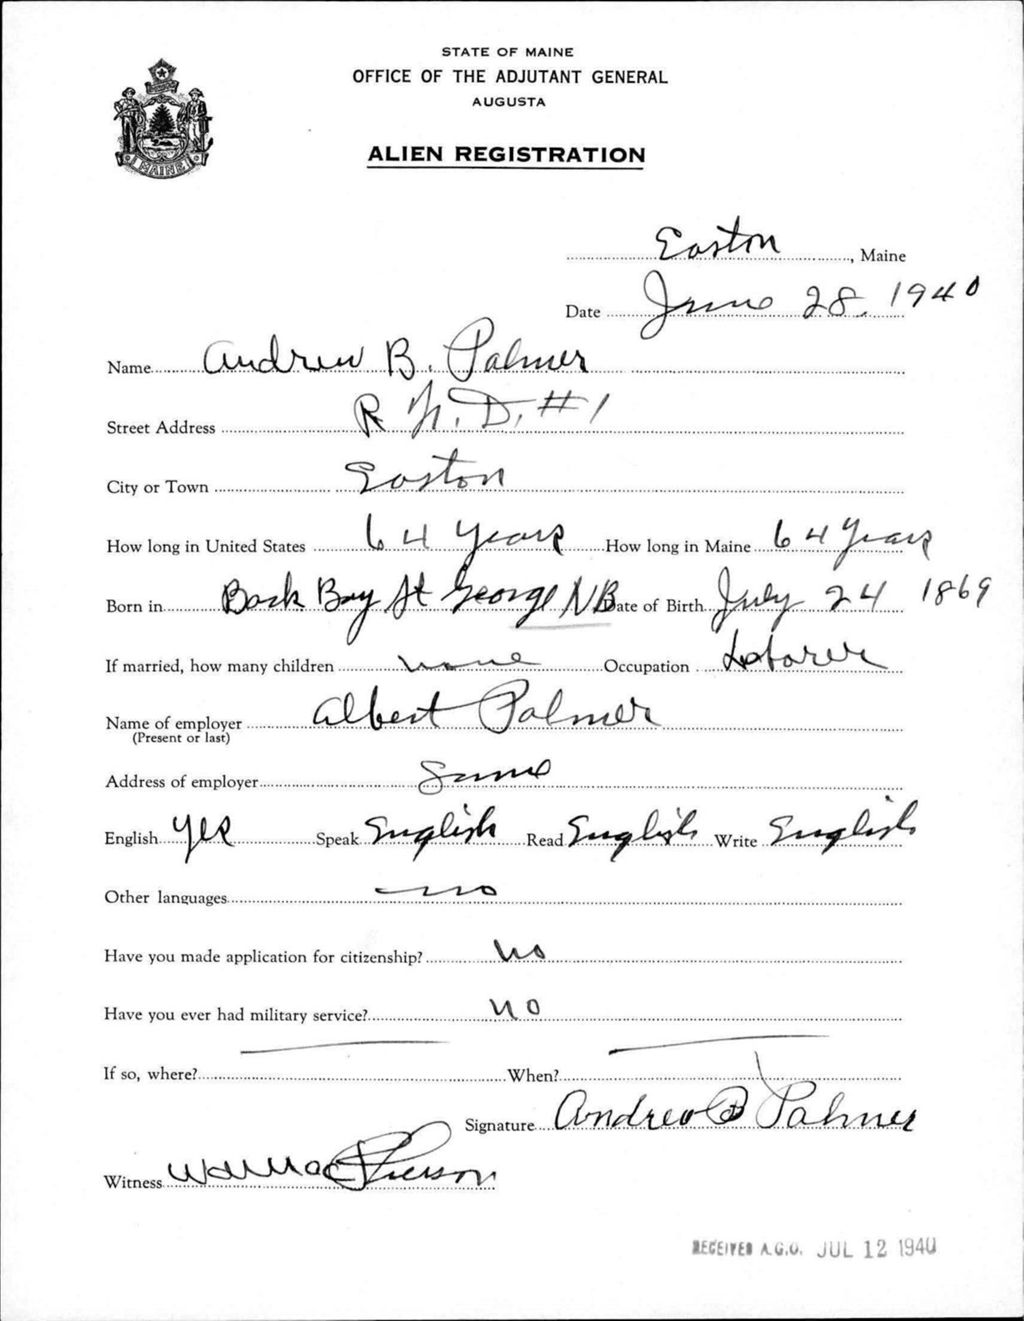 STATE OF MAINE
OFFICE OF THE ADJUTANT GENERAL
AUGUSTA
ALIEN REGISTRATION
MAINE
Easton, Maine
Date June 28, 1940
Name Andrew B. Palmer
Street Address R.F.D. #1
City or Town Easton
How long in United States 64 Years How long in Maine 64 Years
Born in Back Bay St George NB Date of Birth July 24 1869
If married, how many children none Occupation Laborer
Name of employer Albert Palmer
(Present or last)
Address of employer Same
English yes Speak English Read English Write English
Other languages no
Have you made application for citizenship? no
Have you ever had military service? no
If so, where? When?
Signature Andrew B Palmer
Witness
RECEIVED A.G.O. JUL 12 1940